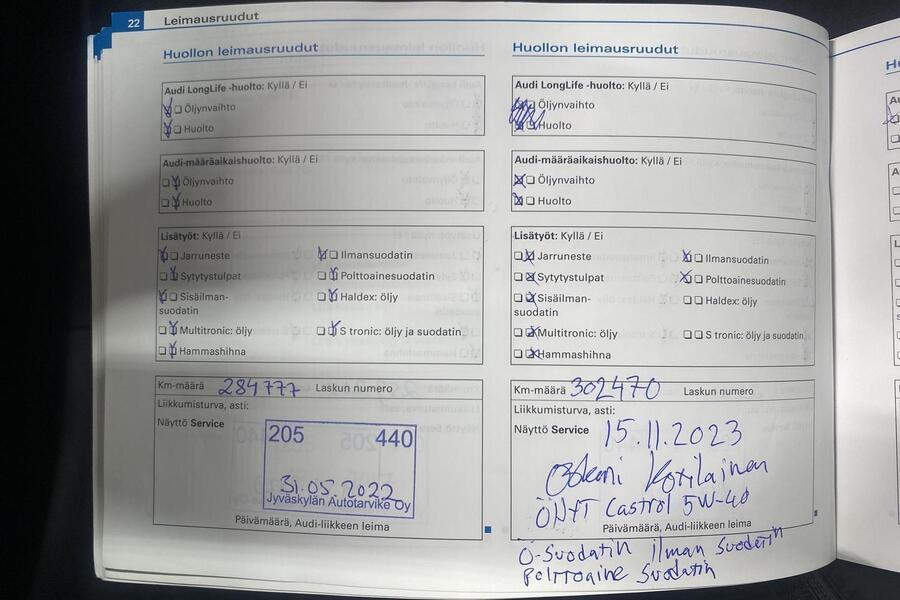 22 Leimausruudut
Huollon leimausruudut
Audi LongLife -huolto: Kyllä / Ei
Öljynvaihto
Huolto
Audi-määräaikaishuolto: Kyllä / Ei
Öljynvaihto
Huolto
Lisätyöt: Kyllä / Ei
Jarruneste
Ilmansuodatin
Sytytystulpat
Polttoainesuodatin
Sisäilman-
suodatin
Haldex: öljy
Multitronic: öljy
S tronic: öljy ja suodatin
Hammashihna
Km-määrä 284777 Laskun numero
Liikkumisturva, asti:
Näyttö Service
205 440
31.05.2022
Jyväskylän Autotarvike Oy
Päivämäärä, Audi-liikkeen leima
Huollon leimausruudut
Audi LongLife -huolto: Kyllä / Ei
Öljynvaihto
Huolto
Audi-määräaikaishuolto: Kyllä / Ei
Öljynvaihto
Huolto
Lisätyöt: Kyllä / Ei
Jarruneste
Ilmansuodatin
Sytytystulpat
Polttoainesuodatin
Sisäilman-
suodatin
Haldex: öljy
Multitronic: öljy
S tronic: öljy ja suodatin
Hammashihna
Km-määrä 302470 Laskun numero
Liikkumisturva, asti:
Näyttö Service
15.11.2023
Kotilainen
Castrol 5W-40
Päivämäärä, Audi-liikkeen leima
Ö-Suodatin ilman Suodatin
Polttoaine Suodatin